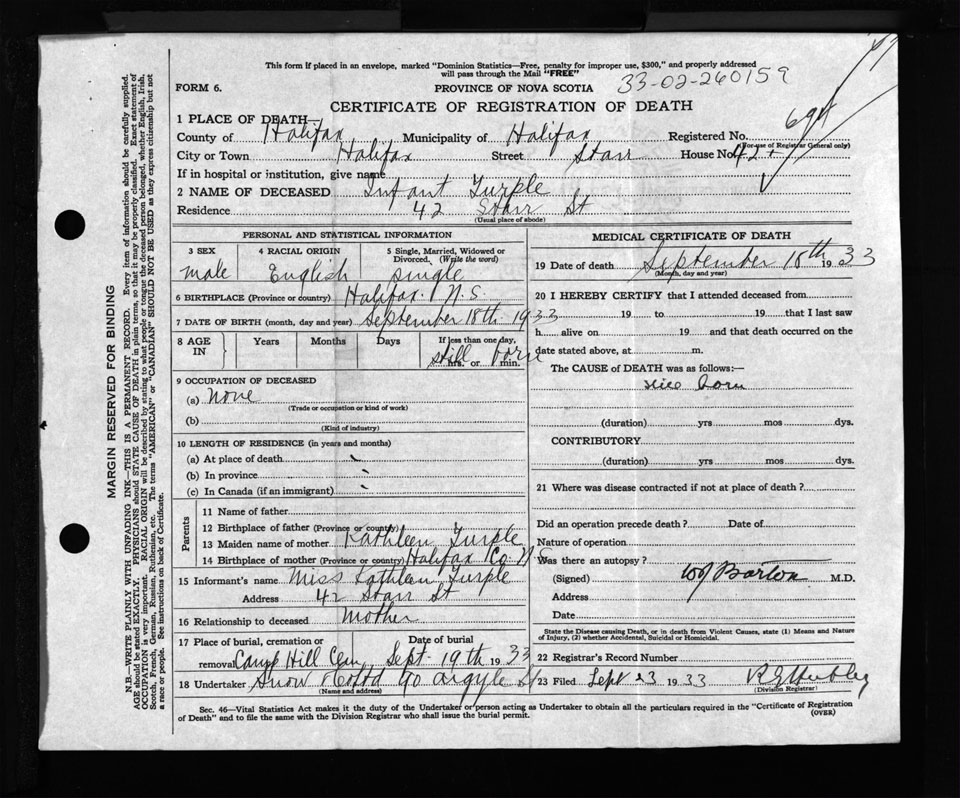 This form if placed in an envelope, marked "Dominion Statistics—Free, penalty for improper use, $300," and properly addressed
will pass through the Mail "FREE"
33-02-260159
FORM 6.
PROVINCE OF NOVA SCOTIA
CERTIFICATE OF REGISTRATION OF DEATH
1 PLACE OF DEATH—
County of Halifax Municipality of Halifax Registered No.
(For use of Registrar General only)
City or Town Halifax Street Starr House No. 42
If in hospital or institution, give name
2 NAME OF DECEASED Infant Turple
Residence 42 Starr St
(Usual place of abode)
PERSONAL AND STATISTICAL INFORMATION
3 SEX 4 RACIAL ORIGIN 5 Single, Married, Widowed or
Divorced. (Write the word)
male English single
6 BIRTHPLACE (Province or country) Halifax N.S.
7 DATE OF BIRTH (month, day and year) September 18th 1933
8 AGE IN Years Months Days If less than one day,
still born
hrs. or min.
9 OCCUPATION OF DECEASED
(a) none
(Trade or occupation or kind of work)
(b)
(Kind of industry)
10 LENGTH OF RESIDENCE (in years and months)
(a) At place of death
(b) In province
(c) In Canada (if an immigrant)
Parents
11 Name of father
12 Birthplace of father (Province or country)
13 Maiden name of mother Kathleen Turple
14 Birthplace of mother (Province or country) Halifax Co N.S
15 Informant's name Miss Kathleen Turple
Address 42 Starr St
16 Relationship to deceased Mother
17 Place of burial, cremation or Date of burial
removal Camp Hill Cem Sept 19th 1933
18 Undertaker Snow & Co Ltd 90 Argyle St
(Name and address)
MEDICAL CERTIFICATE OF DEATH
19 Date of death September 18th 1933
(Month, day and year)
20 I HEREBY CERTIFY that I attended deceased from
19 to 19 that I last saw
h alive on 19 and that death occurred on the
date stated above, at m.
The CAUSE of DEATH was as follows:—
still born
(duration) yrs mos dys.
CONTRIBUTORY
(duration) yrs mos dys.
21 Where was disease contracted if not at place of death?
Did an operation precede death? Date of
Nature of operation
Was there an autopsy?
(Signed) Barton M.D.
Address
Date
State the Disease causing Death, or in death from Violent Causes, state (1) Means and Nature
of Injury, (2) whether Accidental, Suicidal or Homicidal.
22 Registrar's Record Number
23 Filed Sept 23 1933
(Division Registrar)
Sec. 46—Vital Statistics Act makes it the duty of the Undertaker or person acting as Undertaker to obtain all the particulars required in the "Certificate of Registration
of Death" and to file the same with the Division Registrar who shall issue the burial permit.
(OVER)
MARGIN RESERVED FOR BINDING
N.B.—WRITE PLAINLY WITH UNFADING INK—THIS IS A PERMANENT RECORD. Every item of information should be carefully supplied.
AGE should be stated EXACTLY. PHYSICIANS should STATE CAUSE OF DEATH in plain terms, so that it may be properly classified. Exact statement of
OCCUPATION is very important. RACIAL ORIGIN will be described by stating to what people or tongue the deceased person belonged, whether English, Irish,
Scotch, French, German, Russian, Ruthenian, etc. The terms "AMERICAN" or "CANADIAN" SHOULD NOT BE USED as they express citizenship but not
a race or people. See instructions on back of Certificate.